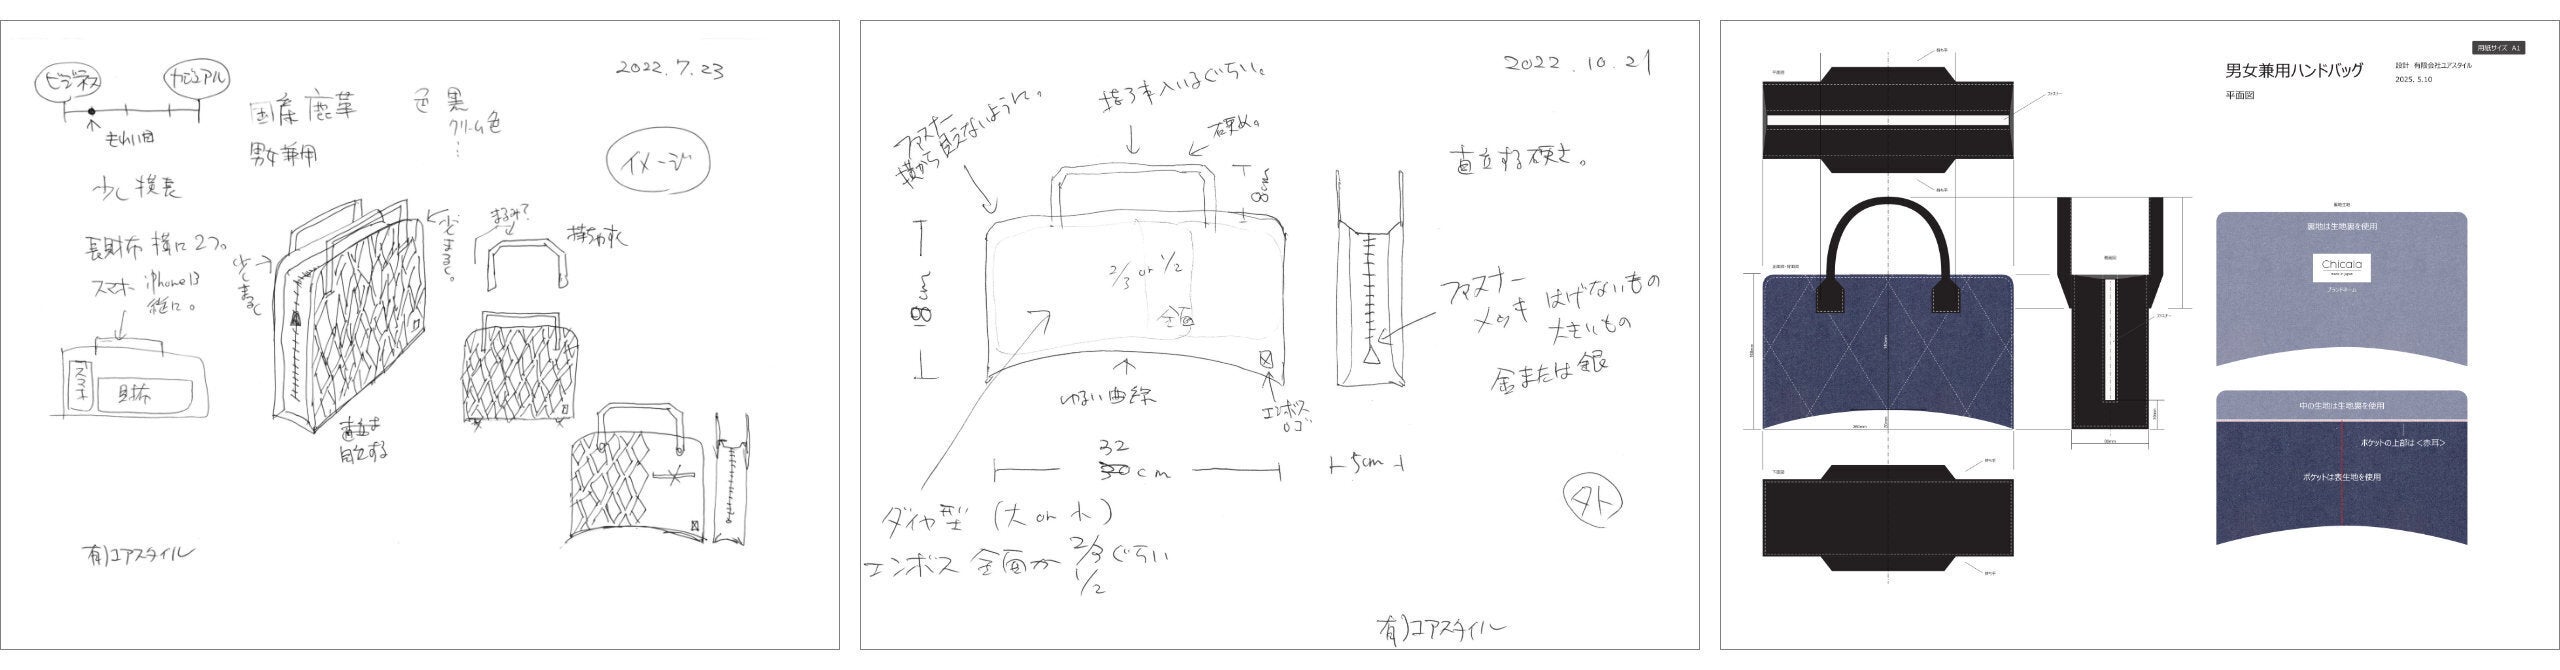 2022.7.23
ビジネス
カジュアル
国産鹿革
男女兼用
色 黒
クリーム色
イメージ
少し横長
長財布 横に2つ。
スマホ iPhone13
縦に。
少しまるく
少しまるく。
まるみ?
持ちやすく
スマホ
財布
直立は
自立する
有)ユアスタイル
2022.10.21
ファスナー
横から見えないように。
指3本入いるぐらい。
硬め。
8cm
直立する硬さ。
18cm
2/3 or 1/2
全面
ゆるい曲線
エンボス
ロゴ
ファスナー
メッキ はげないもの
大きいもの
金または銀
32
30cm
5cm
外
ダイヤ型 (大 or 小)
エンボス 全面か 2/3ぐらい
1/2
有)ユアスタイル
用紙サイズ A1
男女兼用ハンドバッグ
設計 有限会社ユアスタイル
2025. 5.10
平面図
平面図
持ち手
ファスナー
持ち手
正面図・背面図
側面図
ファスナー
下面図
持ち手
持ち手
裏地生地
裏地は生地裏を使用
Chicala
made in japan
ブランドネーム
中の生地は生地裏を使用
ポケットの上部は<赤耳>
ポケットは表生地を使用